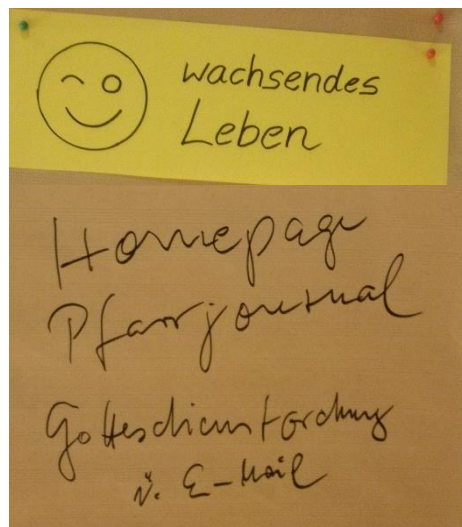 wachsendes
Leben
Homepage
Pfarrjournal
Gottesdienstordnung
ü. E-Mail